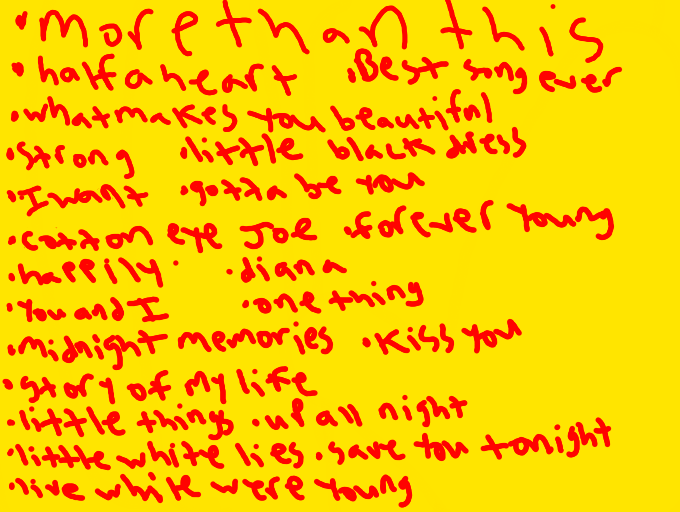 • more than this
• half a heart •Best song ever
•what makes you beautiful
•strong •little black dress
•I want •gotta be you
•cotton eye Joe •forever young
•happily •diana
•You and I •one thing
•midnight memories •Kiss you
•story of my life
•little things •up all night
•little white lies •save you tonight
•live while were young